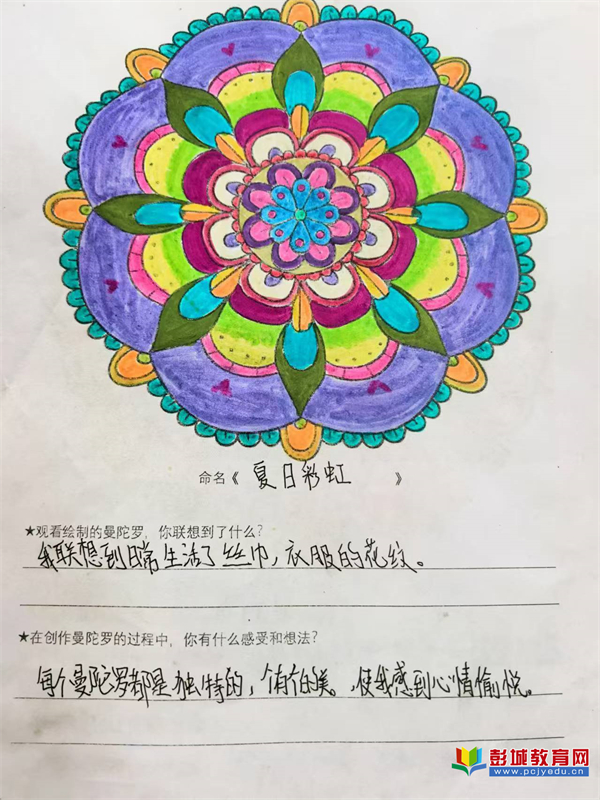 命名《 夏日彩虹 》
★观看绘制的曼陀罗，你联想到了什么?
我联想到日常生活了丝巾，衣服的花纹。
★在创作曼陀罗的过程中，你有什么感受和想法?
每个曼陀罗都是独特的，个有个的美。，使我感到心情愉悦。
彭城教育网
www.pcjyedu.cn